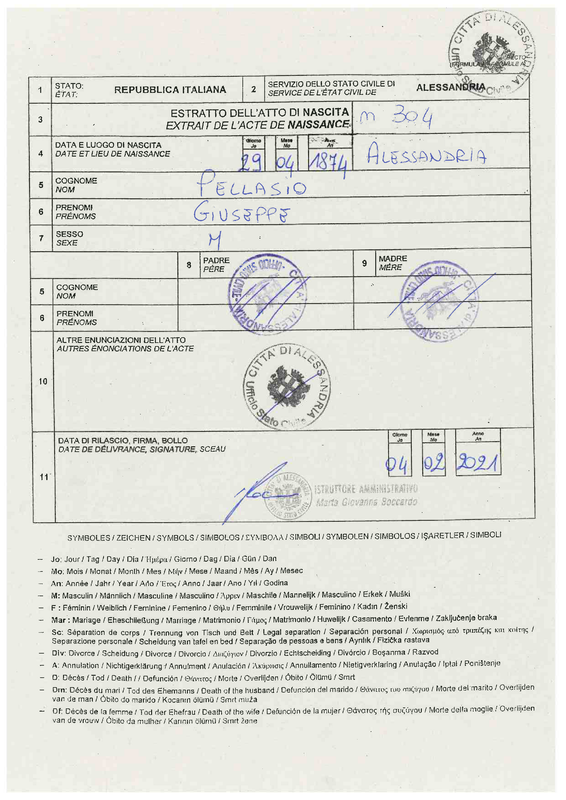 CITTA' DI ALESSANDRIA
Ufficio Stato Civile
1 STATO: ÉTAT: REPUBBLICA ITALIANA 2 SERVIZIO DELLO STATO CIVILE DI SERVICE DE L'ÉTAT CIVIL DE ALESSANDRIA
3 ESTRATTO DELL'ATTO DI NASCITA
EXTRAIT DE L'ACTE DE NAISSANCE n 304
4 DATA E LUOGO DI NASCITA
DATE ET LIEU DE NAISSANCE
Giorno Jo Mese Mo
29 04 1874 ALESSANDRIA
5 COGNOME
NOM
PELLASIO
6 PRENOMI
PRÉNOMS
GIUSEPPE
7 SESSO
SEXE
M
8 PADRE
PÈRE
9 MADRE
MÈRE
5 COGNOME
NOM
6 PRENOMI
PRÉNOMS
CITTA' DI ALESSANDRIA - UFFICIO STATO CIVILE
CITTA' DI ALESSANDRIA - UFFICIO STATO CIVILE
10 ALTRE ENUNCIAZIONI DELL'ATTO
AUTRES ÉNONCIATIONS DE L'ACTE
CITTA' DI ALESSANDRIA
Ufficio Stato Civile
11 DATA DI RILASCIO, FIRMA, BOLLO
DATE DE DÉLIVRANCE, SIGNATURE, SCEAU
Giorno Jo Mese Mo Anno An
04 02 2021
ISTRUTTORE AMMINISTRATIVO
Marta Giovanna Boccardo
SYMBOLES / ZEICHEN / SYMBOLS / SIMBOLOS / ΣΥΜΒΟΛΑ / SIMBOLI / SYMBOLEN / SIMBOLOS / IŞARETLER / SIMBOLI
– Jo: Jour / Tag / Day / Día / Ἡμέρα / Giorno / Dag / Dia / Gün / Dan
– Mo: Mois / Monat / Month / Mes / Μήν / Mese / Maand / Mês / Ay / Mesec
– An: Année / Jahr / Year / Año / Ἔτος / Anno / Jaar / Ano / Yıl / Godina
– M: Masculin / Männlich / Masculine / Masculino / Ἄρρεν / Maschile / Mannelijk / Masculino / Erkek / Muški
– F : Féminin / Weiblich / Feminine / Femenino / Θῆλυ / Femminile / Vrouwelijk / Feminino / Kadın / Ženski
– Mar : Mariage / Eheschließung / Marriage / Matrimonio / Γάμος / Matrimonio / Huwelijk / Casamento / Evlenme / Zaključenje braka
– Sc: Séparation de corps / Trennung von Tisch und Bett / Legal separation / Separación personal / Χωρισμὸς ἀπὸ τραπέζης καὶ κοίτης /
Separazione personale / Scheiding van tafel en bed / Separação de pessoas e bens / Ayrılık / Fizička rastava
– Div: Divorce / Scheidung / Divorce / Divorcio / Διαζύγιον / Divorzio / Echtscheiding / Divórcio / Boşanma / Razvod
– A: Annulation / Nichtigerklärung / Annulment / Anulación / Ἀκύρωσις / Annullamento / Nietigverklaring / Anulação / Iptal / Poništenje
– D: Décès / Tod / Death / / Defunción / Θάνατος / Morte / Overlijden / Óbito / Ölümü / Smrt
– Dm: Décès du mari / Tod des Ehemanns / Death of the husband / Defunción del marido / Θάνατος τοῦ συζύγου / Morte del marito / Overlijden
van de man / Óbito do marido / Kocanın ölümü / Smrt muža
– Df: Décès de la femme / Tod der Ehefrau / Death of the wife / Defunción de la mujer / Θάνατος τῆς συζύγου / Morte della moglie / Overlijden
van de vrouw / Óbito da mulher / Karının ölümü / Smrt žene